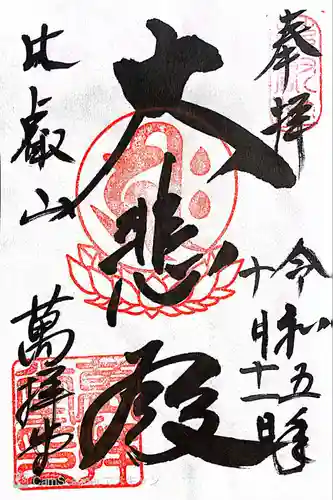 奉拝
令和五年
十月十一日
大悲殿
比叡山
萬拝堂
CamS